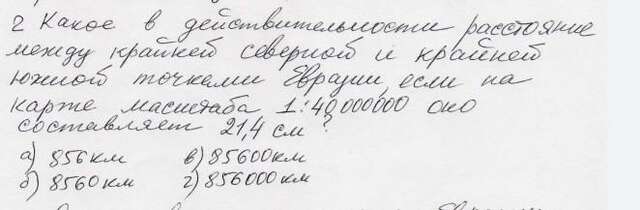 2 Какое в действительности расстояние
между крайней северной и крайней
южной точками Евразии, если на
карте масштаба 1:40 000000 оно
составляет 21,4 см?
а) 856 км в) 85600 км
б) 8560 км г) 856000 км